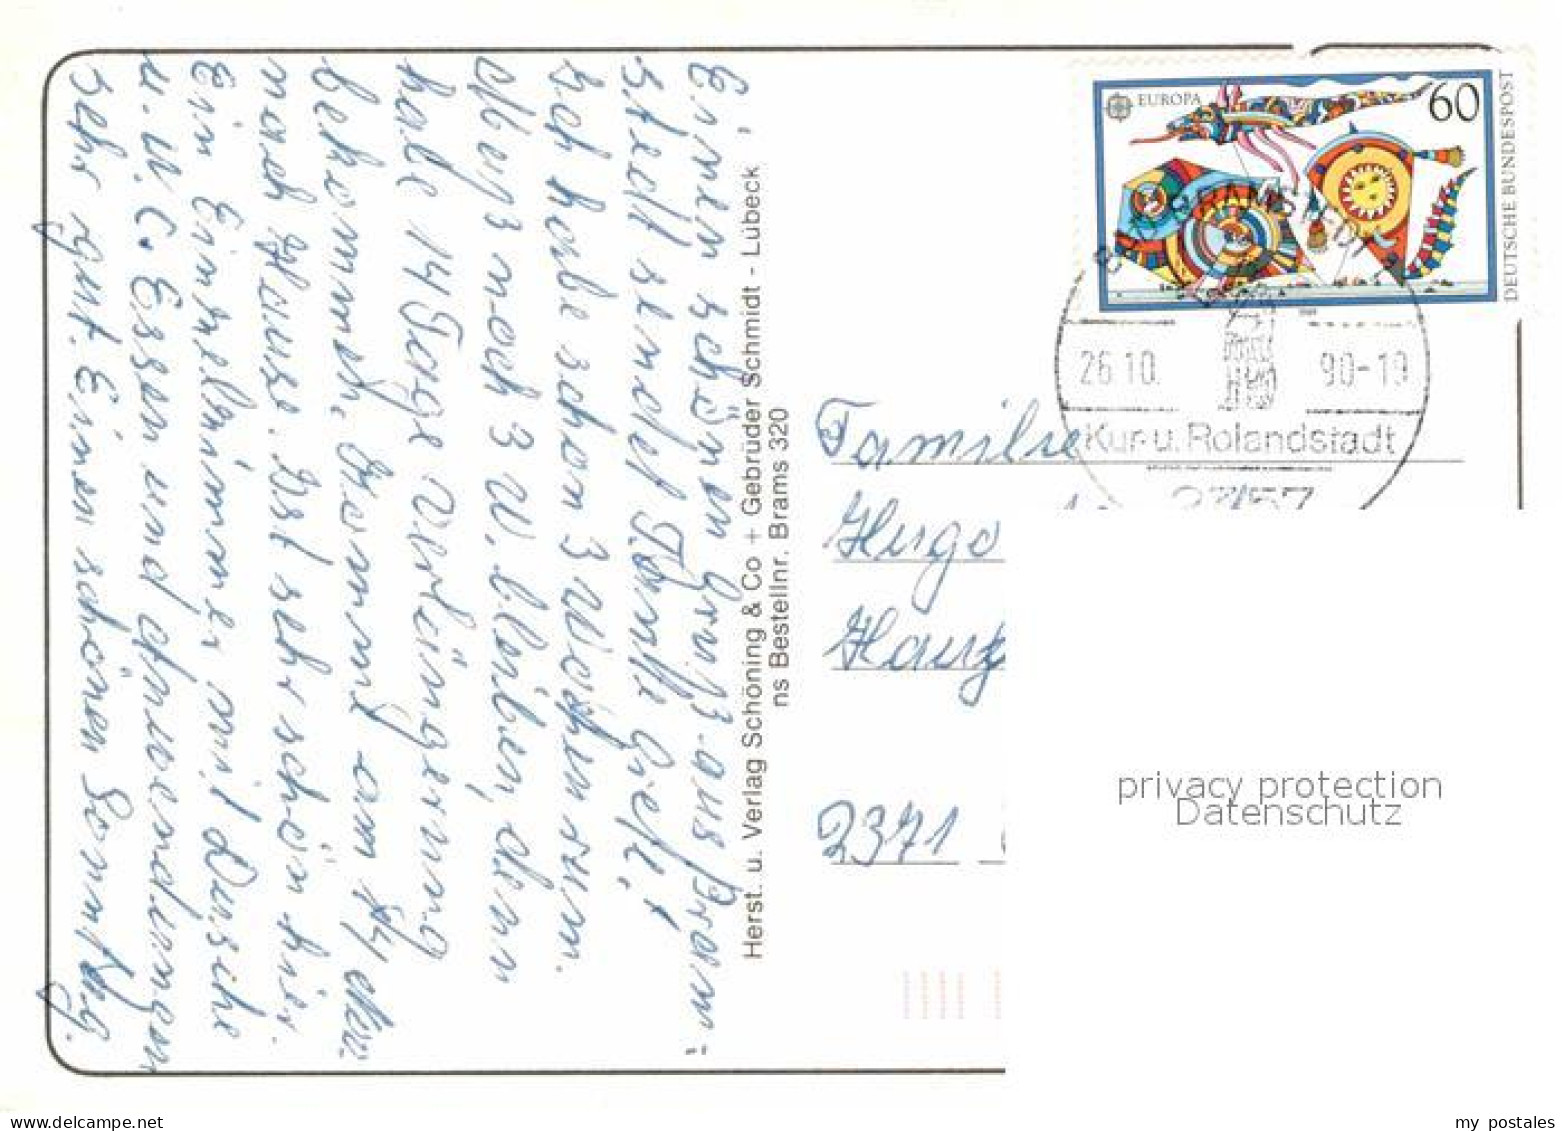 Einen schönen Gruß aus Bram-
stedt sendet Tante Grete!
Ich habe schon 3 Wochen rum.
Muß noch 3 W. bleiben, denn
habe 14 Tage Verlängerung
bekommen, komme am 14 Nov.
nach Hause. Ist sehr schön hier.
Ein Einzelzimmer mit Dusche
u. W.C. Essen und Anwendungen
sehr gut. Einen schönen Sonntag.
Herst. u. Verlag Schöning & Co + Gebrüder Schmidt - Lübeck
ns Bestellnr. Brams 320
EUROPA
60
DEUTSCHE BUNDESPOST
BAD BRAMSTEDT
26.10. 90-19
Kur- u. Rolandstadt
2357
Familie
Hugo
2371
privacy protection
Datenschutz
my postales